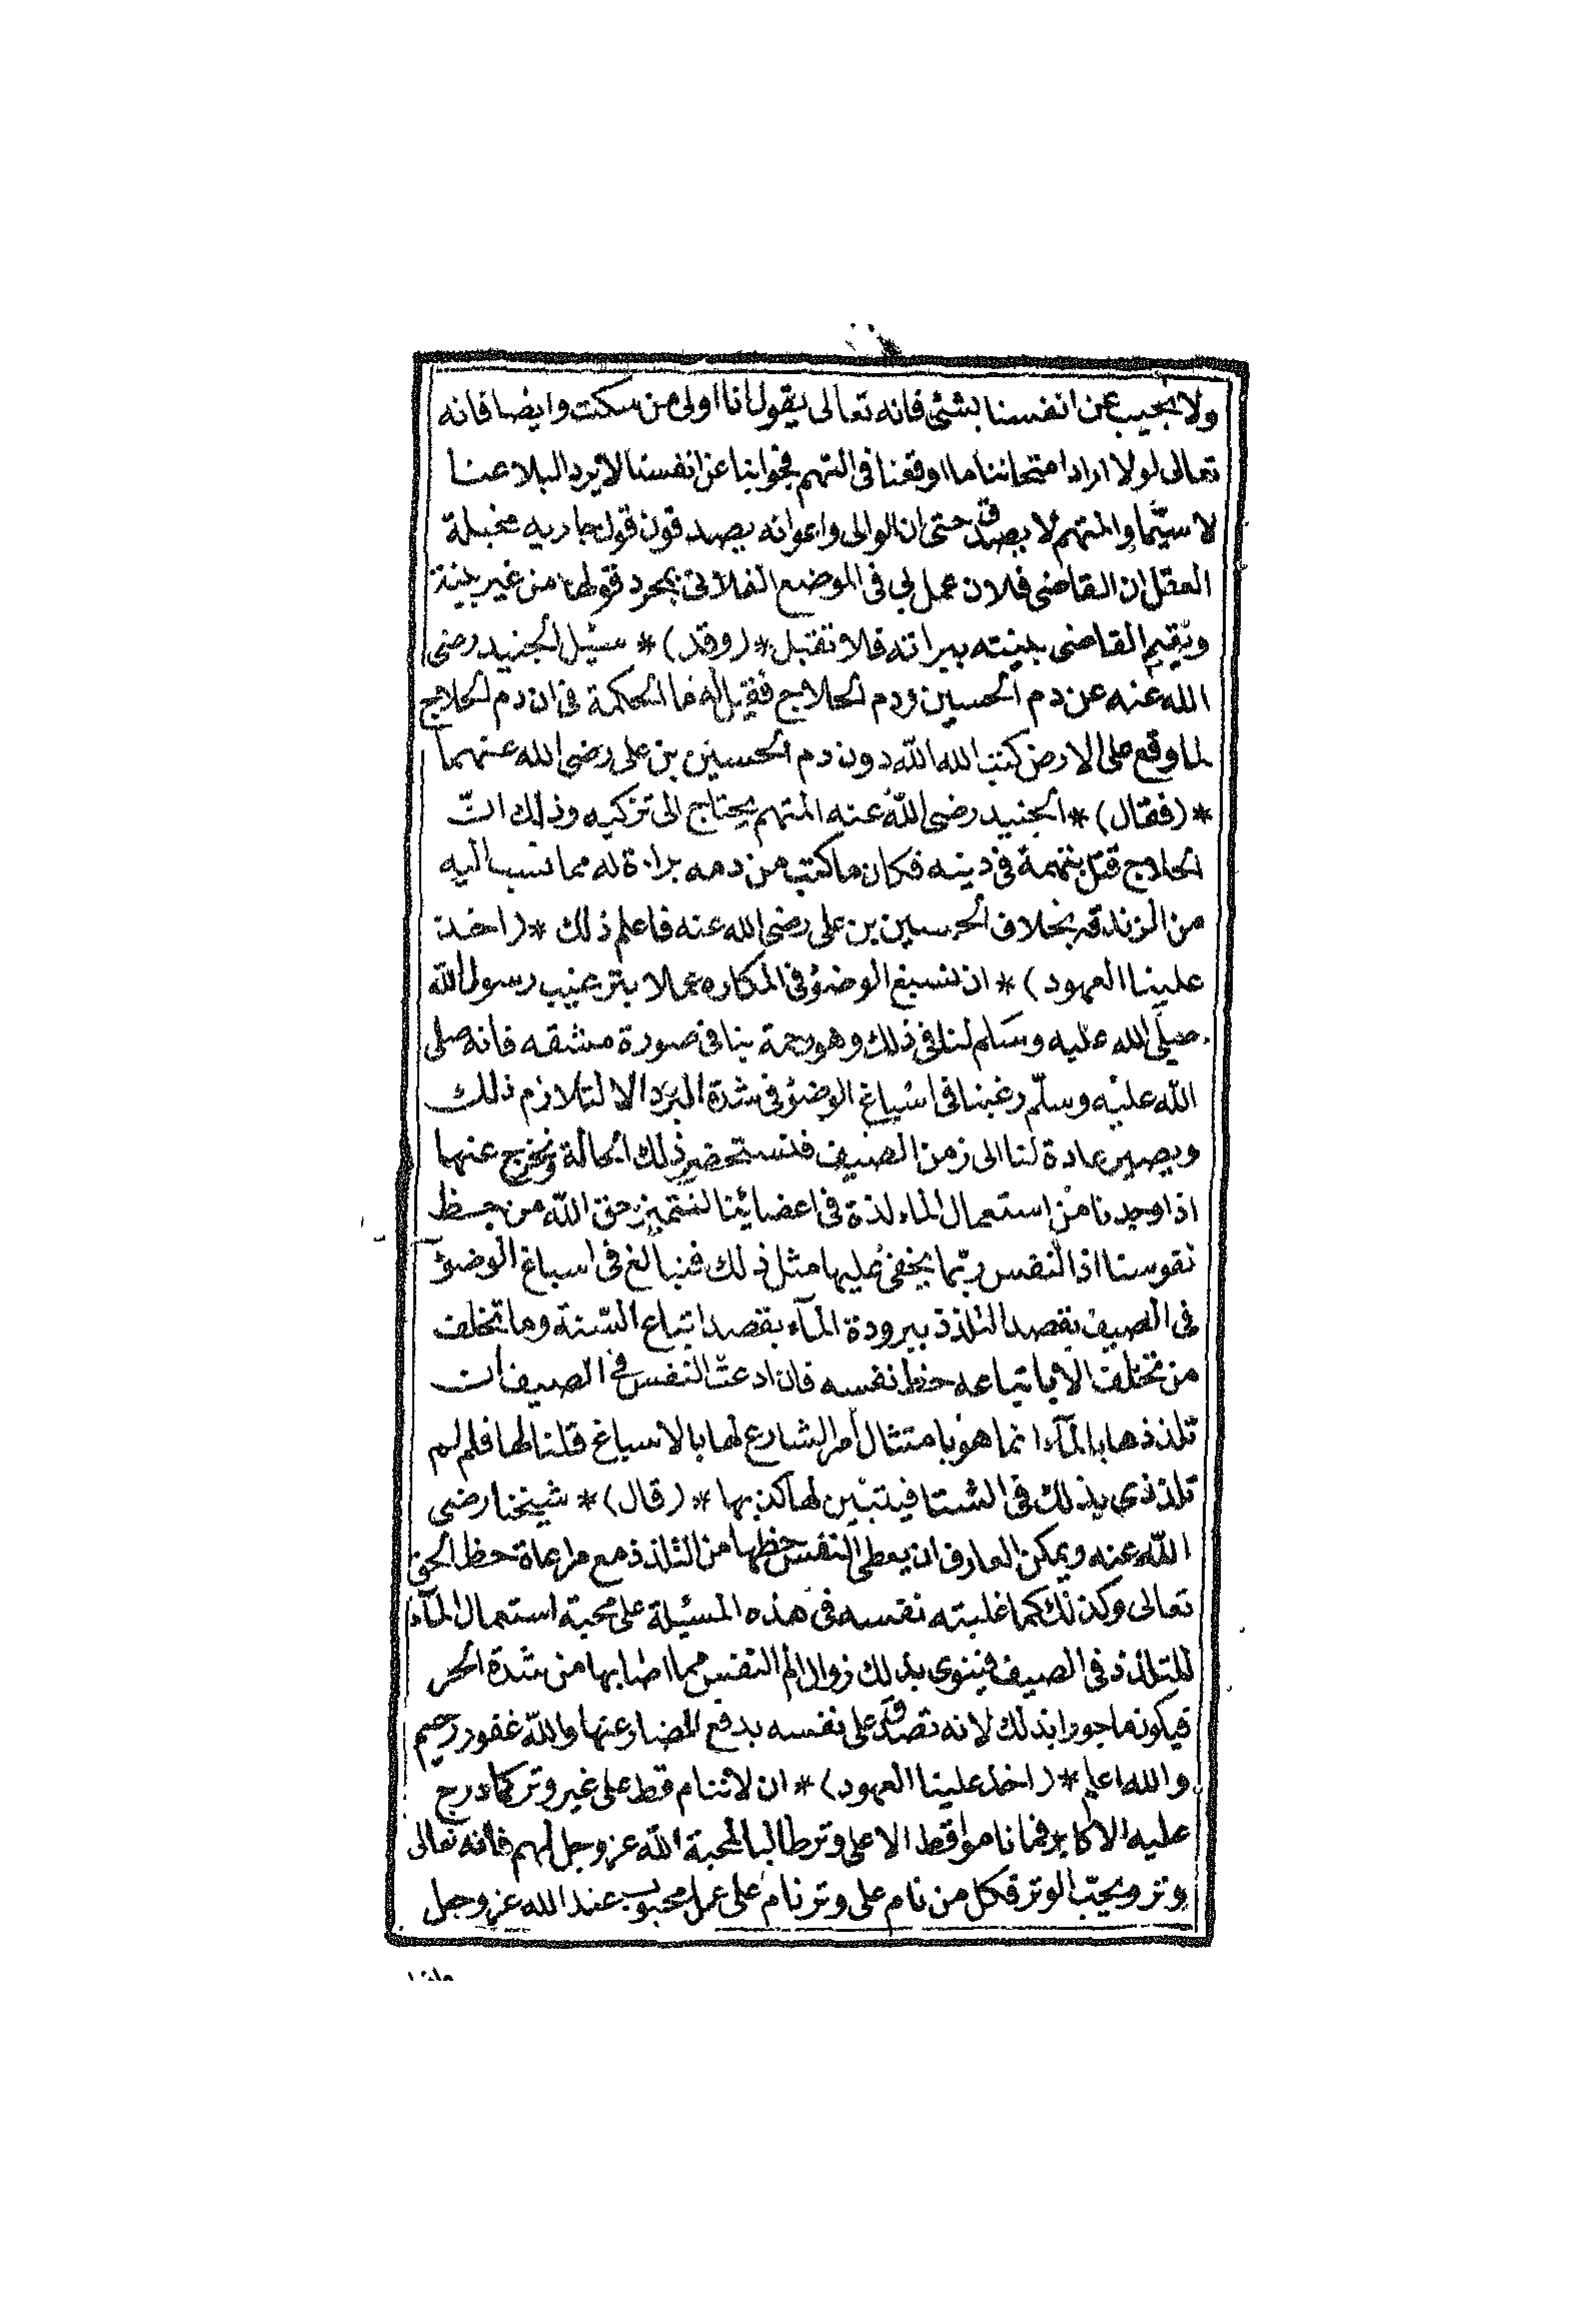 ولا نجيب عن انفسنا بشئ فانه تعالى يقول انا اولى من سكت وايضا فانه
تعالى لولا اراد امتحاننا ما اوقفنا فى التهم فجوابنا عن انفسنا لا يرد البلا عنا
لا سيّما والمتهم لا يصدق حتى ان الوالى واعوانه يصدقون قول جاريه مخبلة
العقل ان القاضى فلان عمل لى فى الموضع الفلانى بمجرد قولها من غير بينة
ويقيم القاضى بينته ببراته فلا تقبل * (وقد) * سئيل الجنيد رضى
الله عنه عن دم الحسين ودم الحلاج فقيل له ما الحكمة فى ان دم الحلاج
لما وقع على الارض كتب الله الله دون دم الحسين بن على رضى الله عنهما
* (فقال) * الجنيد رضى الله عنه المتهم يحتاج الى تزكيه وذلك انّ
الحلاج قتل بتهمة فى دينه فكان ما كتب من دمه براءة له مما نسب اليه
من الزندقه بخلاف الحسين بن على رضى الله عنه فاعلم ذلك * (اخذ
علينا العهود) * ان نسبغ الوضؤ فى المكاره عملا بترغيب رسول الله
صلّى الله عليه وسلم لنا فى ذلك وهو رحمة بنا فى صورة مشقه فانه صلى
الله عليه وسلّم رغبنا فى اسباغ الوضؤ فى شدة البرد الا لتلازم ذلك
ويصير عادة لنا الى زمن الصيف فنستحضر ذلك الحالة ونخرج عنها
اذا وجدنا من استعمال الماء لذة فى اعضائنا لنتميز حق الله من حظ
نفوسنا اذ النفس ربّما يخفى عليها مثل ذلك فنبالغ فى اسباغ الوضؤ
فى الصيف بقصد التلذذ ببرودة المآء بقصد اتباع السّنة وما تخلف
من تخلف الا باتباعه حظ نفسه فان ادعت النفس فى الصيف ان
تلذذها بالمآء انما هو بامتثال امر الشارع لها بالاسباغ قلنا لها فلم لم
تلذذى بذلك فى الشتا فيتبين لها كذبها * (قال) * شيخنا رضى
الله عنه ويمكن العارف ان يعطى النفس حظها من التلذذ مع مراعاة حظ الحق
تعالى وكذلك كما غلبته نفسه فى هذه المسئيلة على محبة استعمال المآء
للتلذذ فى الصيف فينوى بذلك زوال الم النفس مما اصابها من شدة الحر
فيكون ماجورا بذلك لانه تصدق على نفسه بدفع المضار عنها والله غفور رحيم
والله اعلم * (اخذ علينا العهود) * ان لا ننام قط على غير وتر كما درج
عليه الاكابر فما ناموا قط الا على وتر طالبا لمحبة الله عز وجل لهم فانه تعالى
وتر ويحبّ الوتر فكل من نام على وتر نام على عمل محبوب عند الله عز وجل